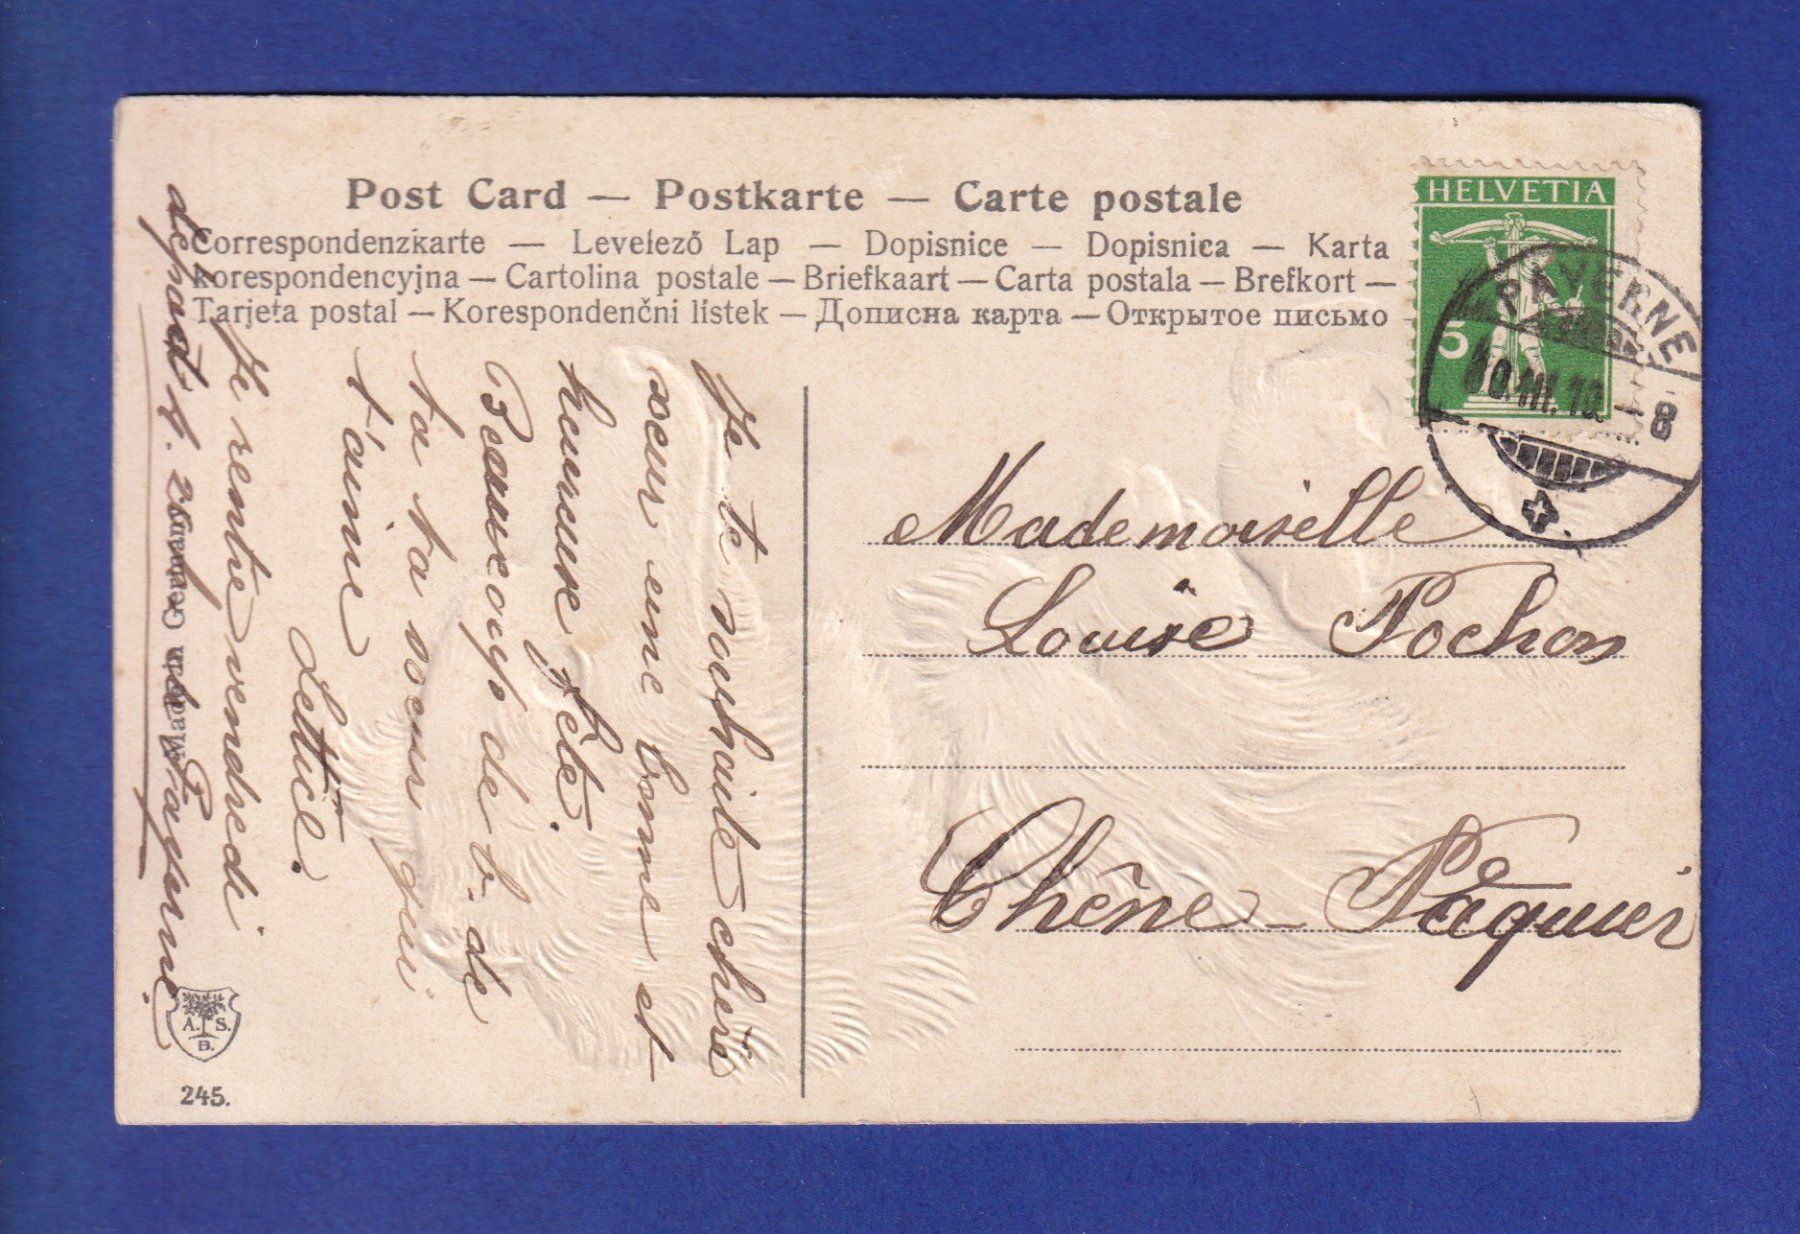 Post Card — Postkarte — Carte postale
Correspondenzkarte — Levelező Lap — Dopisnice — Dopisnica — Karta
korespondencyjna — Cartolina postale — Briefkaart — Carta postala — Brefkort —
Tarjeta postal — Korespondenčni listek — Дописна карта — Открытое письмо
HELVETIA
5
PAYERNE
10.III.10. – 8
Mademoiselle
Louise Pochon
Chêne-Pâquier
Je te souhaite chère
sœur une bonne et
heureuse fête.
Beaucoup de b. de
ta ta sœur qui
t'aime
Lettice.
Je rentre vendredi
départ
Payerne.
Made in Germany
A. S.
B.
245.